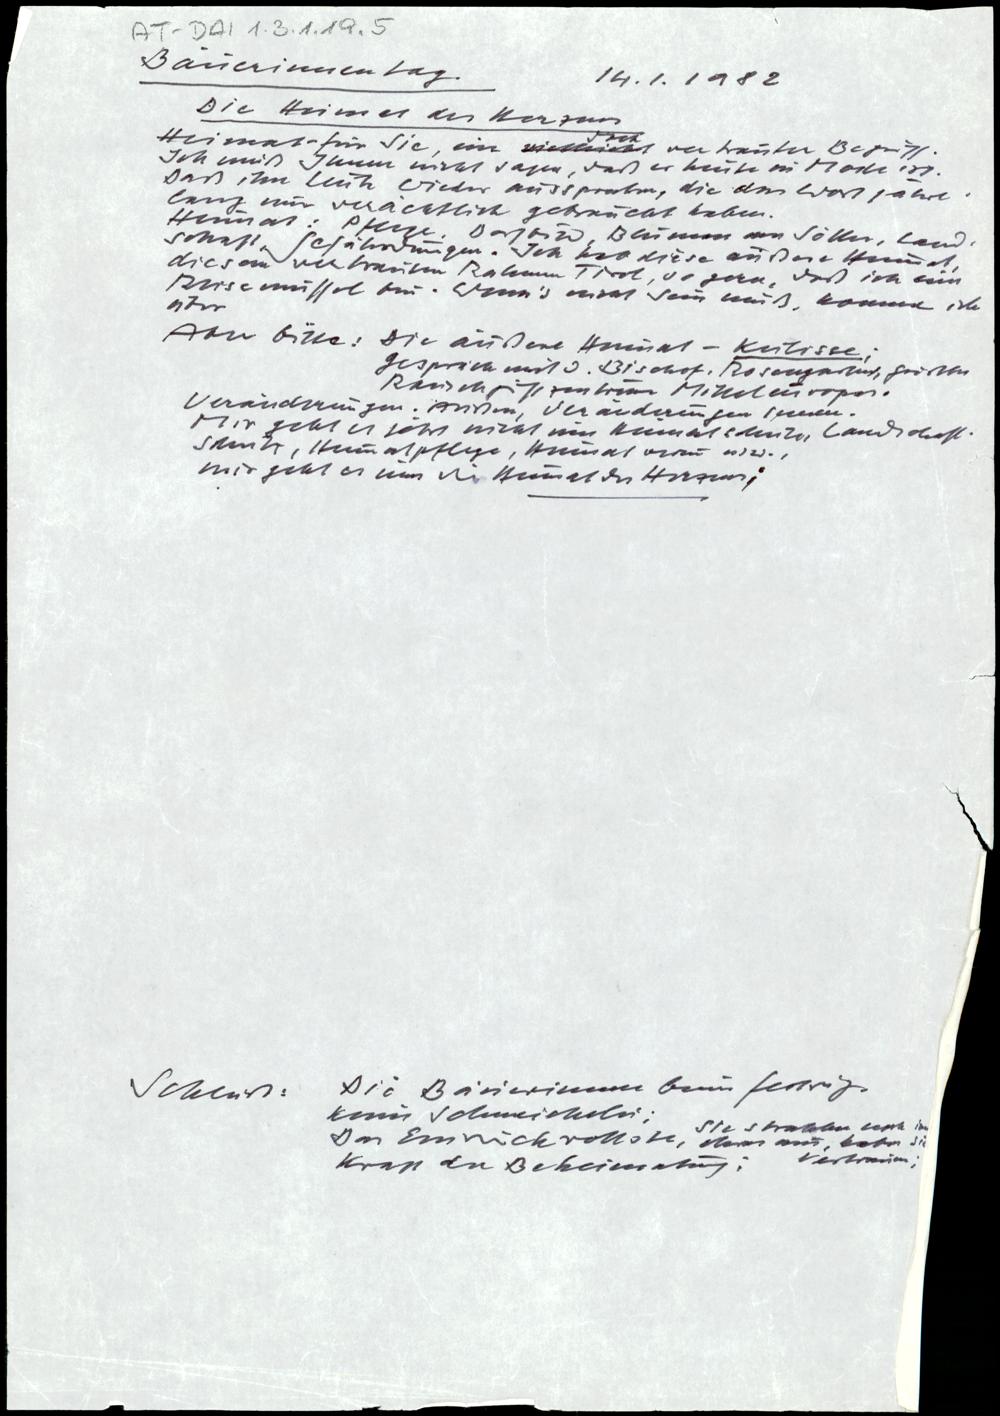 AT-DAI 1.3.1.19.5
Bäuerinnentag. 14.1.1982
Die Heimat des Herzens
Heimat - für Sie, ein vielleicht doch vertrauter Begriff.
Ich muß Ihnen nicht sagen, daß er heute in Mode ist.
Daß ihn Leute wieder aussprechen, die das Wort jahre-
lang nur verächtlich gebraucht haben.
Heimat: Pflege, Dorfbild, Blumen am Söller, Land-
schaft, Gefährdungen. Ich hab diese äußere Heimat,
diesen vertrauten Rahmen Tirol, so gern, daß ich ein
Reisemuffel bin. Wenn's nicht sein muß, komme ich
nper
Aber bitte: Die äußere Heimat - Kulisse;
Gespräch mit d. Bischof. Rosengarten, größten
Rauschgiftzentrum Mitteleuropas.
Veränderungen. Außen, Veränderungen innen.
Mir geht es jetzt nicht um Heimatschutz, Landschaft-
schutz, Heimatpflege, Heimatverein usw.,
mir geht es um die Heimat des Herzens;
Schluß: Die Bäuerinnen beim
keine Schmeichelei;
Das Eindrucksvollste, Sie strahlen noch im
etwas aus, haben Sie
Kraft der Beheimatung; Vertrauen;